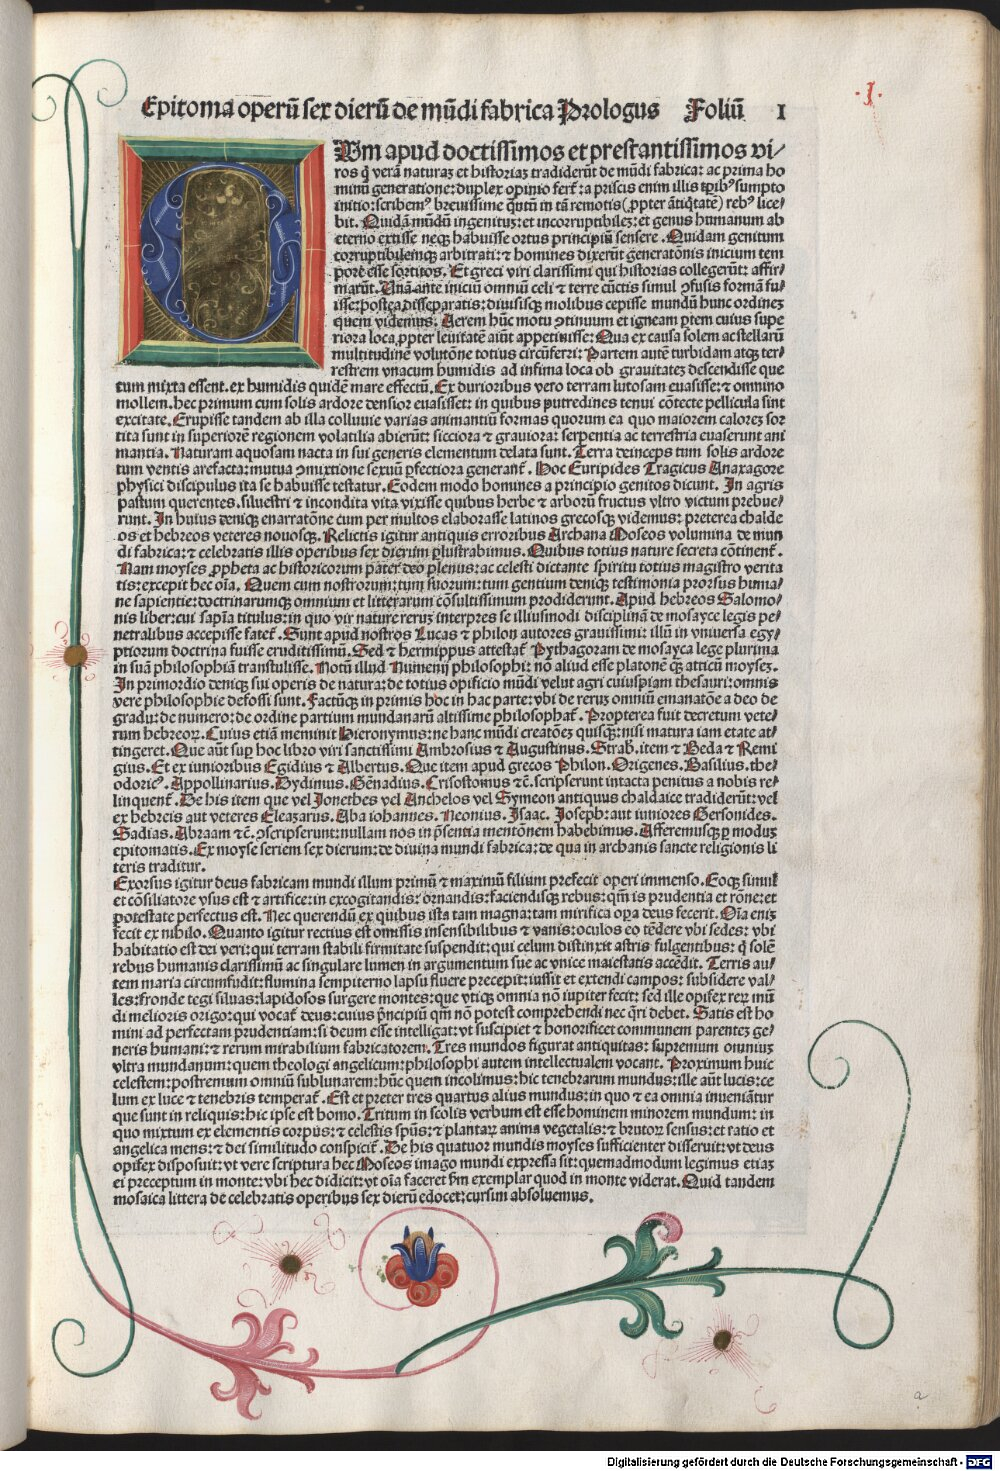 .I.
Epitoma operū sex dierū de mūdi fabrica Prologus Foliū I
Um apud doctissimos et prestantissimos vi⸗
ros q̄ verā naturaꝫ et historiaꝫ tradiderūt de mūdi fabrica: ac prima ho
minū generatione: duplex opinio fert᷑: a priscis enim illis tꝑibꝰ sumpto
initio: scribemꝰ breuissime q̄tū in tā remotis (ꝓpter ātiq̄tatē) rebꝰ lice⸗
bit. Quidā mūdū ingenitū: et incorruptibileꝫ: et genus humanum ab
eterno extisse neqꝫ habuisse ortus principiū sensere. Quidam genitum
corruptibilemqꝫ arbitrati: ⁊ homines dixerūt generatonis inicium tem
pore esse sortitos. Et greci viri clarissimi qui historias collegerūt: affir⸗
marūt. Unā ante iniciū omniū celi ⁊ terre cūctis simul ꝯfusis formā fu⸗
isse: postea disseparatis: diuisisqꝫ molibus cepisse mundū hunc ordineꝫ
quem videmus: Aerem hūc motu ꝯtinuum et igneam ꝑtem cuius supe
riora loca ꝓpter leuitatē aiūt appetiuisse: Qua ex causa solem ac stellarū
multitudinē volutōne totius circūferri: Partem autē turbidam atqꝫ ter⸗
restrem vnacum humidis ad infima loca ob grauitateꝫ descendisse que
tum mixta essent. ex humidis quidē mare effectū. Ex durioribus vero terram lutosam euasisse: ⁊ omnino
mollem. hec primum cum solis ardore densior euasisset: in quibus putredines tenui cōtecte pellicula sint
excitate. Erupisse tandem ab illa colluuie varias animantiū formas quorum ea quo maiorem caloreꝫ sor
tita sunt in superiorē regionem volatilia abierūt: sicciora ⁊ grauiora: serpentia ac terrestria euaserunt ani
mantia. Naturam aquosam nacta in sui generis elementum delata sunt. Terra deinceps tum solis ardore
tum ventis arefacta: mutua ꝯmixtione sexuū ꝑfectiora generant᷑. Hoc Euripides Tragicus Anaxagore
physici discipulus ita se habuisse testatur. Eodem modo homines a principio genitos dicunt. In agris
pastum querentes. siluestri ⁊ incondita vita vixisse quibus herbe ⁊ arborū fructus vltro victum prebue⸗
runt. In huius deniqꝫ enarratōne cum per multos elaborasse latinos grecosqꝫ videmus: preterea chalde
os et hebreos veteres nouosqꝫ. Relictis igitur antiquis erroribus Archana Moseos volumina de mun
di fabrica: ⁊ celebratis illis operibus sex dierum ꝑlustrabimus. Quibus totius nature secreta cōtinent᷑.
Nam moyses ꝓpheta ac historicorum pater deo plenus: ac celesti dictante spiritu totius magistro verita
tis: excepit hec oīa. Quem cum nostrorum: tum suorum: tum gentium deniqꝫ testimonia prorsus huma⸗
ne sapientie: doctrinarumqꝫ omnium et litterarum cōsultissimum prodiderunt. Apud hebreos Salomo⸗
nis liber: cui sapīa titulus: in quo vir nature rerum interpres se illiusmodi disciplinā de mosayce legis pe⸗
netralibus accepisse fatet᷑. Sunt apud nostros Lucas ⁊ philon autores grauissimi: illū in vniuersa egy⸗
ptiorum doctrina fuisse eruditissimū. Sed ⁊ hermippus attestat᷑ Pythagoram de mosayca lege plurima
in suā philosophiā transtulisse. Notū illud Numenij philosophi: nō aliud esse platonē qꝫ atticū moyseꝫ.
In primordio deniqꝫ sui operis de natura: de totius opificio mūdi velut agri cuiuspiam thesauri: omnis
vere philosophie defossi sunt. Factūqꝫ in primis hoc in hac parte: vbi de reruꝫ omniū emanatōe a deo de
gradu: de numero: de ordine partium mundanarū altissime philosophat᷑. Propterea fuit decretum vete⸗
rum hebreoꝝ. Cuius etiā meminit Hieronymus: ne hanc mūdi creatōeꝫ quisqꝫ: nisi matura iam etate at⸗
tingeret. Que aūt suꝑ hoc libro viri sanctissimi Ambrosius ⁊ Augustinus. Strab. item ⁊ Beda ⁊ Remi
gius. Et ex iunioribus Egidius ⁊ Albertus. Que item apud grecos Philon. Origenes. Basilius. the⸗
odoricꝰ. Appollinarius. Dydimus. Gēnadius. Crisostomus ⁊ē. scripserunt intacta penitus a nobis re⸗
linquent᷑. De his item que vel Jonethes vel Anchelos vel Symeon antiquus chaldaice tradiderūt: vel
ex hebreis aut veteres Eleazarus. Aba iohannes. Neonius. Isaac. Joseph: aut iuniores Gersonides.
Sadias. Abraam ⁊ē. ꝯscripserunt: nullam nos in p̄sentia mentōnem habebimus. Afferemusqꝫ ꝑ moduꝫ
epitomatis. Ex moyse seriem sex dierum: de diuina mundi fabrica: de qua in archanis sancte religionis li
teris traditur.
Exorsus igitur deus fabricam mundi illum primū ⁊ maximū filium prefecit operi immenso. Eoqꝫ simul
et cōsiliatore vsus est ⁊ artifice: in excogitandis: ornandis: faciendisqꝫ rebus: qm̄ is prudentia et rōne: et
potestate perfectus est. Nec querendū ex quibus ista tam magna: tam mirifica oꝑa deus fecerit. Oīa enī
fecit ex nihilo. Quanto igitur rectius est omissis insensibilibus ⁊ vanis: oculos eo tēdere vbi sedes: vbi
habitatio est dei veri: qui terram stabili firmitate suspendit: qui celum distinxit astris fulgentibus: q̄ solē
rebus humanis clarissimū ac singulare lumen in argumentum sue ac vnice maiestatis accēdit. Terris au⸗
tem maria circumfudit: flumina sempiterno lapsu fluere precepit: iussit et extendi campos: subsidere val⸗
les: fronde tegi siluas: lapidosos surgere montes: que vtiqꝫ omnia nō iupiter fecit: sed ille opifex reꝝ mū
di melioris origo: qui vocat᷑ deus: cuius p̄ncipiū qm̄ nō potest comprehendi nec q̄ri debet. Satis est ho
mini ad perfectam prudentiam: si deum esse intelligat: vt suscipiet ⁊ honorificet communem parenteꝫ ge⸗
neris humani: ⁊ rerum mirabilium fabricatorem. Tres mundos figurat antiquitas: supremum omniuꝫ
vltra mundanum: quem theologi angelicum: philosophi autem intellectualem vocant. Proximum huic
celestem: postremum omniū sublunarem: hūc quem incolimus: hic tenebrarum mundus: ille aūt lucis: ce
lum ex luce ⁊ tenebris temperat᷑. Est et preter tres quartus alius mundus: in quo ⁊ ea omnia inueniātur
que sunt in reliquis: hic ipse est homo. Tritum in scolis verbum est esse hominem minorem mundum: in
quo mixtum ex elementis corpus: ⁊ celestis spūs: ⁊ plantaꝝ anima vegetalis: ⁊ brutoꝝ sensus: et ratio et
angelica mens: ⁊ dei similitudo conspicit᷑. De his quatuor mundis moyses sufficienter disseruit: vt deus
opifex disposuit: vt vere scriptura hec Moseos imago mundi expressa sit: quemadmodum legimus etiaꝫ
ei preceptum in monte: vbi hec didicit: vt oīa faceret ẜm exemplar quod in monte viderat. Quid tandem
mosaica littera de celebratis operibus sex dierū edocet: cursim absoluemus.
a
Digitalisierung gefördert durch die Deutsche Forschungsgemeinschaft - DFG